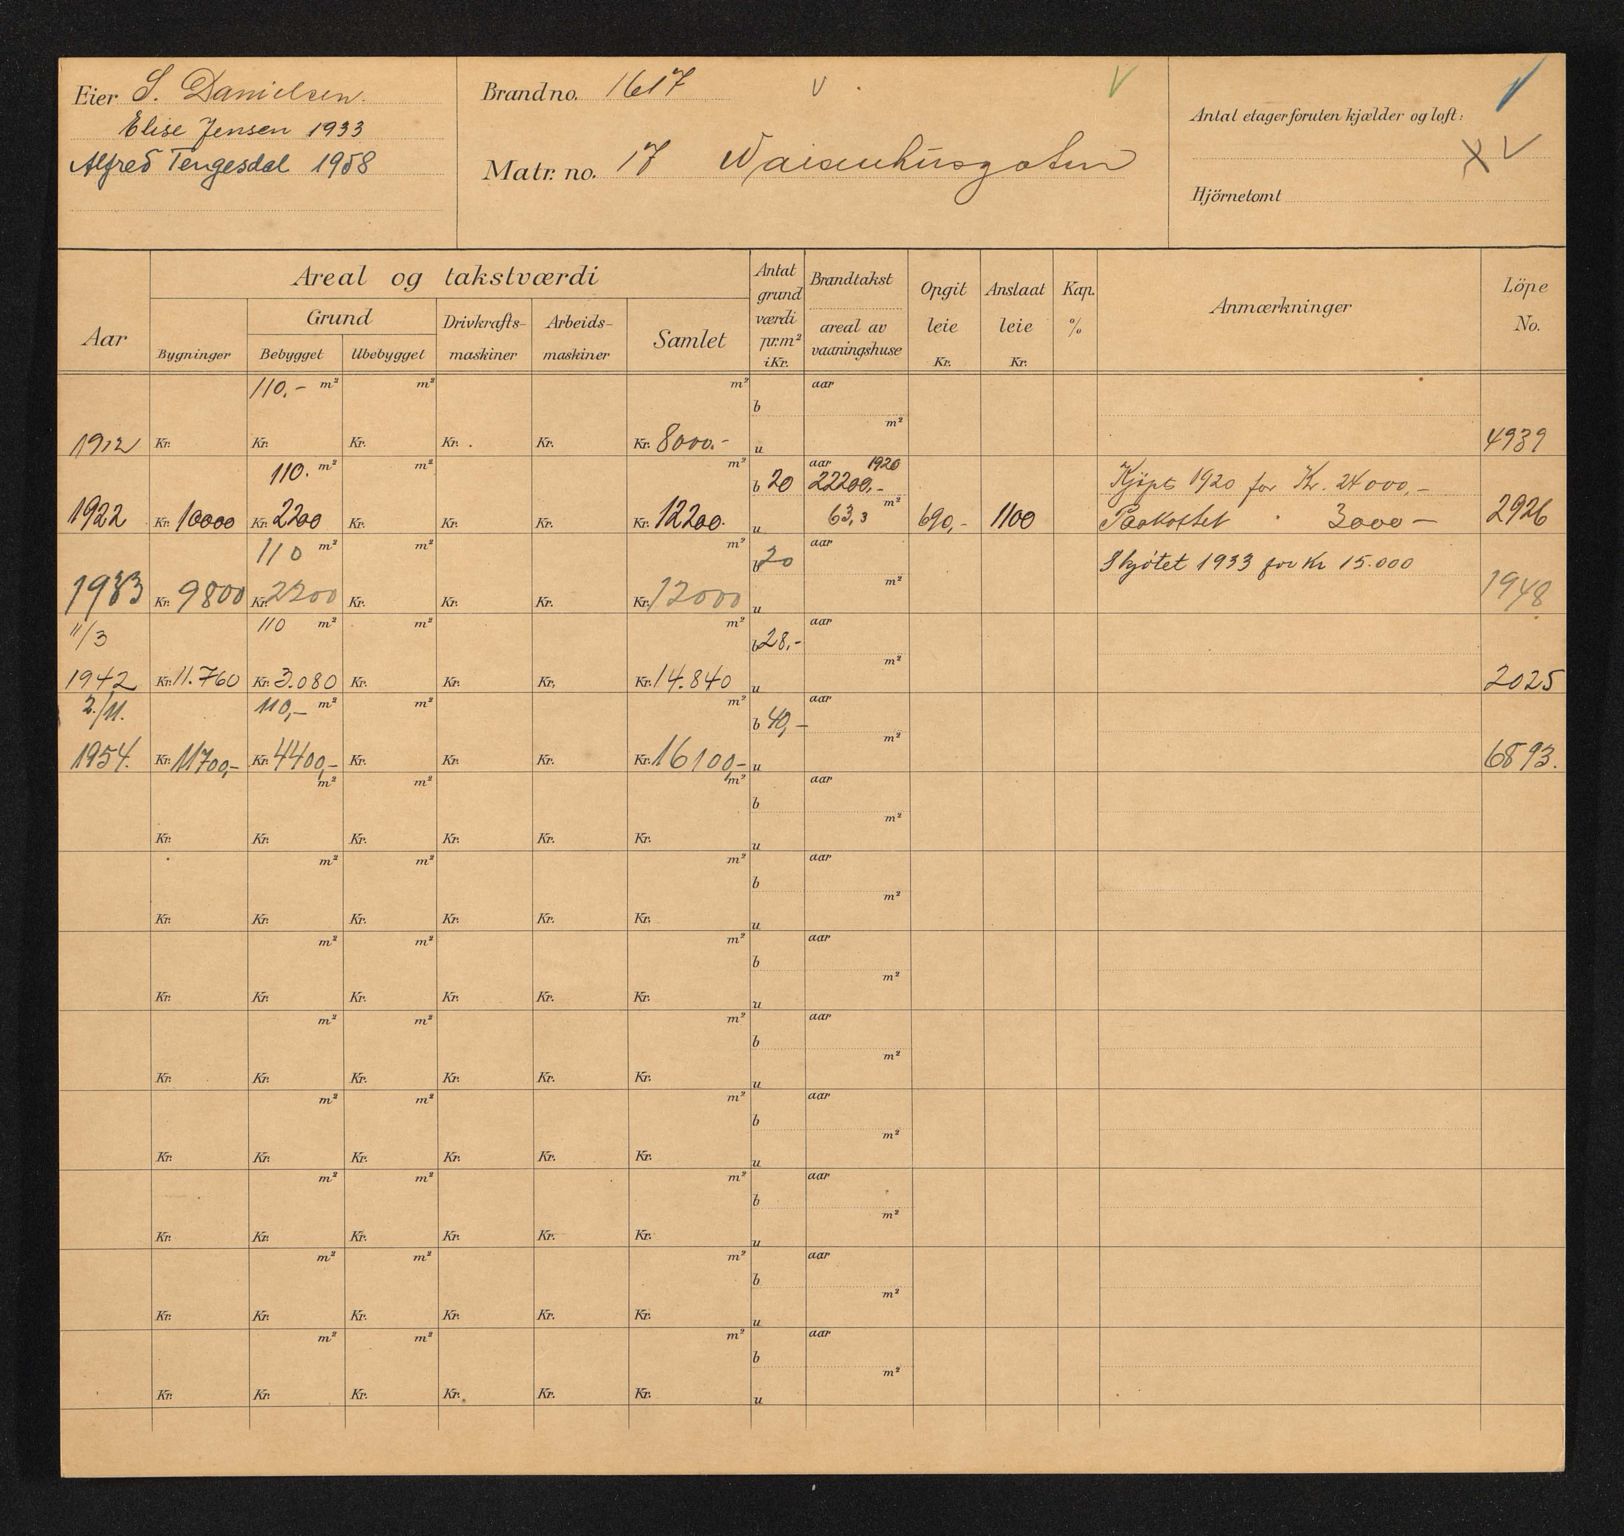 Eier S. Danielsen.
Elise Jensen 1933
Alfred Tengesdal 1958
Brandno. 1617
Matr. no. 17 Waisenhusgaten
Antal etager foruten kjælder og loft:
Hjörnetomt
Aar
Areal og takstværdi
Bygninger
Grund
Bebygget Ubebygget
Drivkrafts-maskiner
Arbeids-maskiner
Samlet
Antat grundværdi pr. m² i Kr.
Brandtakst
areal av vaaningshuse
Opgit leie Kr.
Anslaat leie Kr.
Kap. %
Anmærkninger
Löpe No.
110,- m² m² m² aar
b
m²
1912 Kr. Kr. Kr. Kr. Kr. Kr. 8000.- u 4939
110. m² m² m² aar 1920
b 20 22200,- Kjöpt 1920 for Kr. 24000,-
m²
1922 Kr. 10000 Kr. 2200 Kr. Kr. Kr. Kr. 12200. u 63,3 690,- 1100 Paakostet " 3000 - 2926
110 m² m² m² aar
b 20 Skjøtet 1933 for Kr 15.000
m²
1933 Kr. 9800 Kr. 2200 Kr. Kr. Kr. Kr. 12000 u 1948
11/3 110 m² m² m² aar
b 28,-
m²
1942 Kr. 11.760 Kr. 3.080 Kr. Kr. Kr. Kr. 14.840 u 2025
2./11. 110,- m² m² m² aar
b 40,-
m²
1954. Kr. 11700,- Kr. 4400,- Kr. Kr. Kr. Kr. 16100,- u 6893.
m² m² m² aar
b
m²
Kr. Kr. Kr. Kr. Kr. Kr. u
m² m² m² aar
b
m²
Kr. Kr. Kr. Kr. Kr. Kr. u
m² m² m² aar
b
m²
Kr. Kr. Kr. Kr. Kr. Kr. u
m² m² m² aar
b
m²
Kr. Kr. Kr. Kr. Kr. Kr. u
m² m² m² aar
b
m²
Kr. Kr. Kr. Kr. Kr. Kr. u
m² m² m² aar
b
m²
Kr. Kr. Kr. Kr. Kr. Kr. u
m² m² m² aar
b
m²
Kr. Kr. Kr. Kr. Kr. Kr. u
m² m² m² aar
b
m²
Kr. Kr. Kr. Kr. Kr. Kr. u